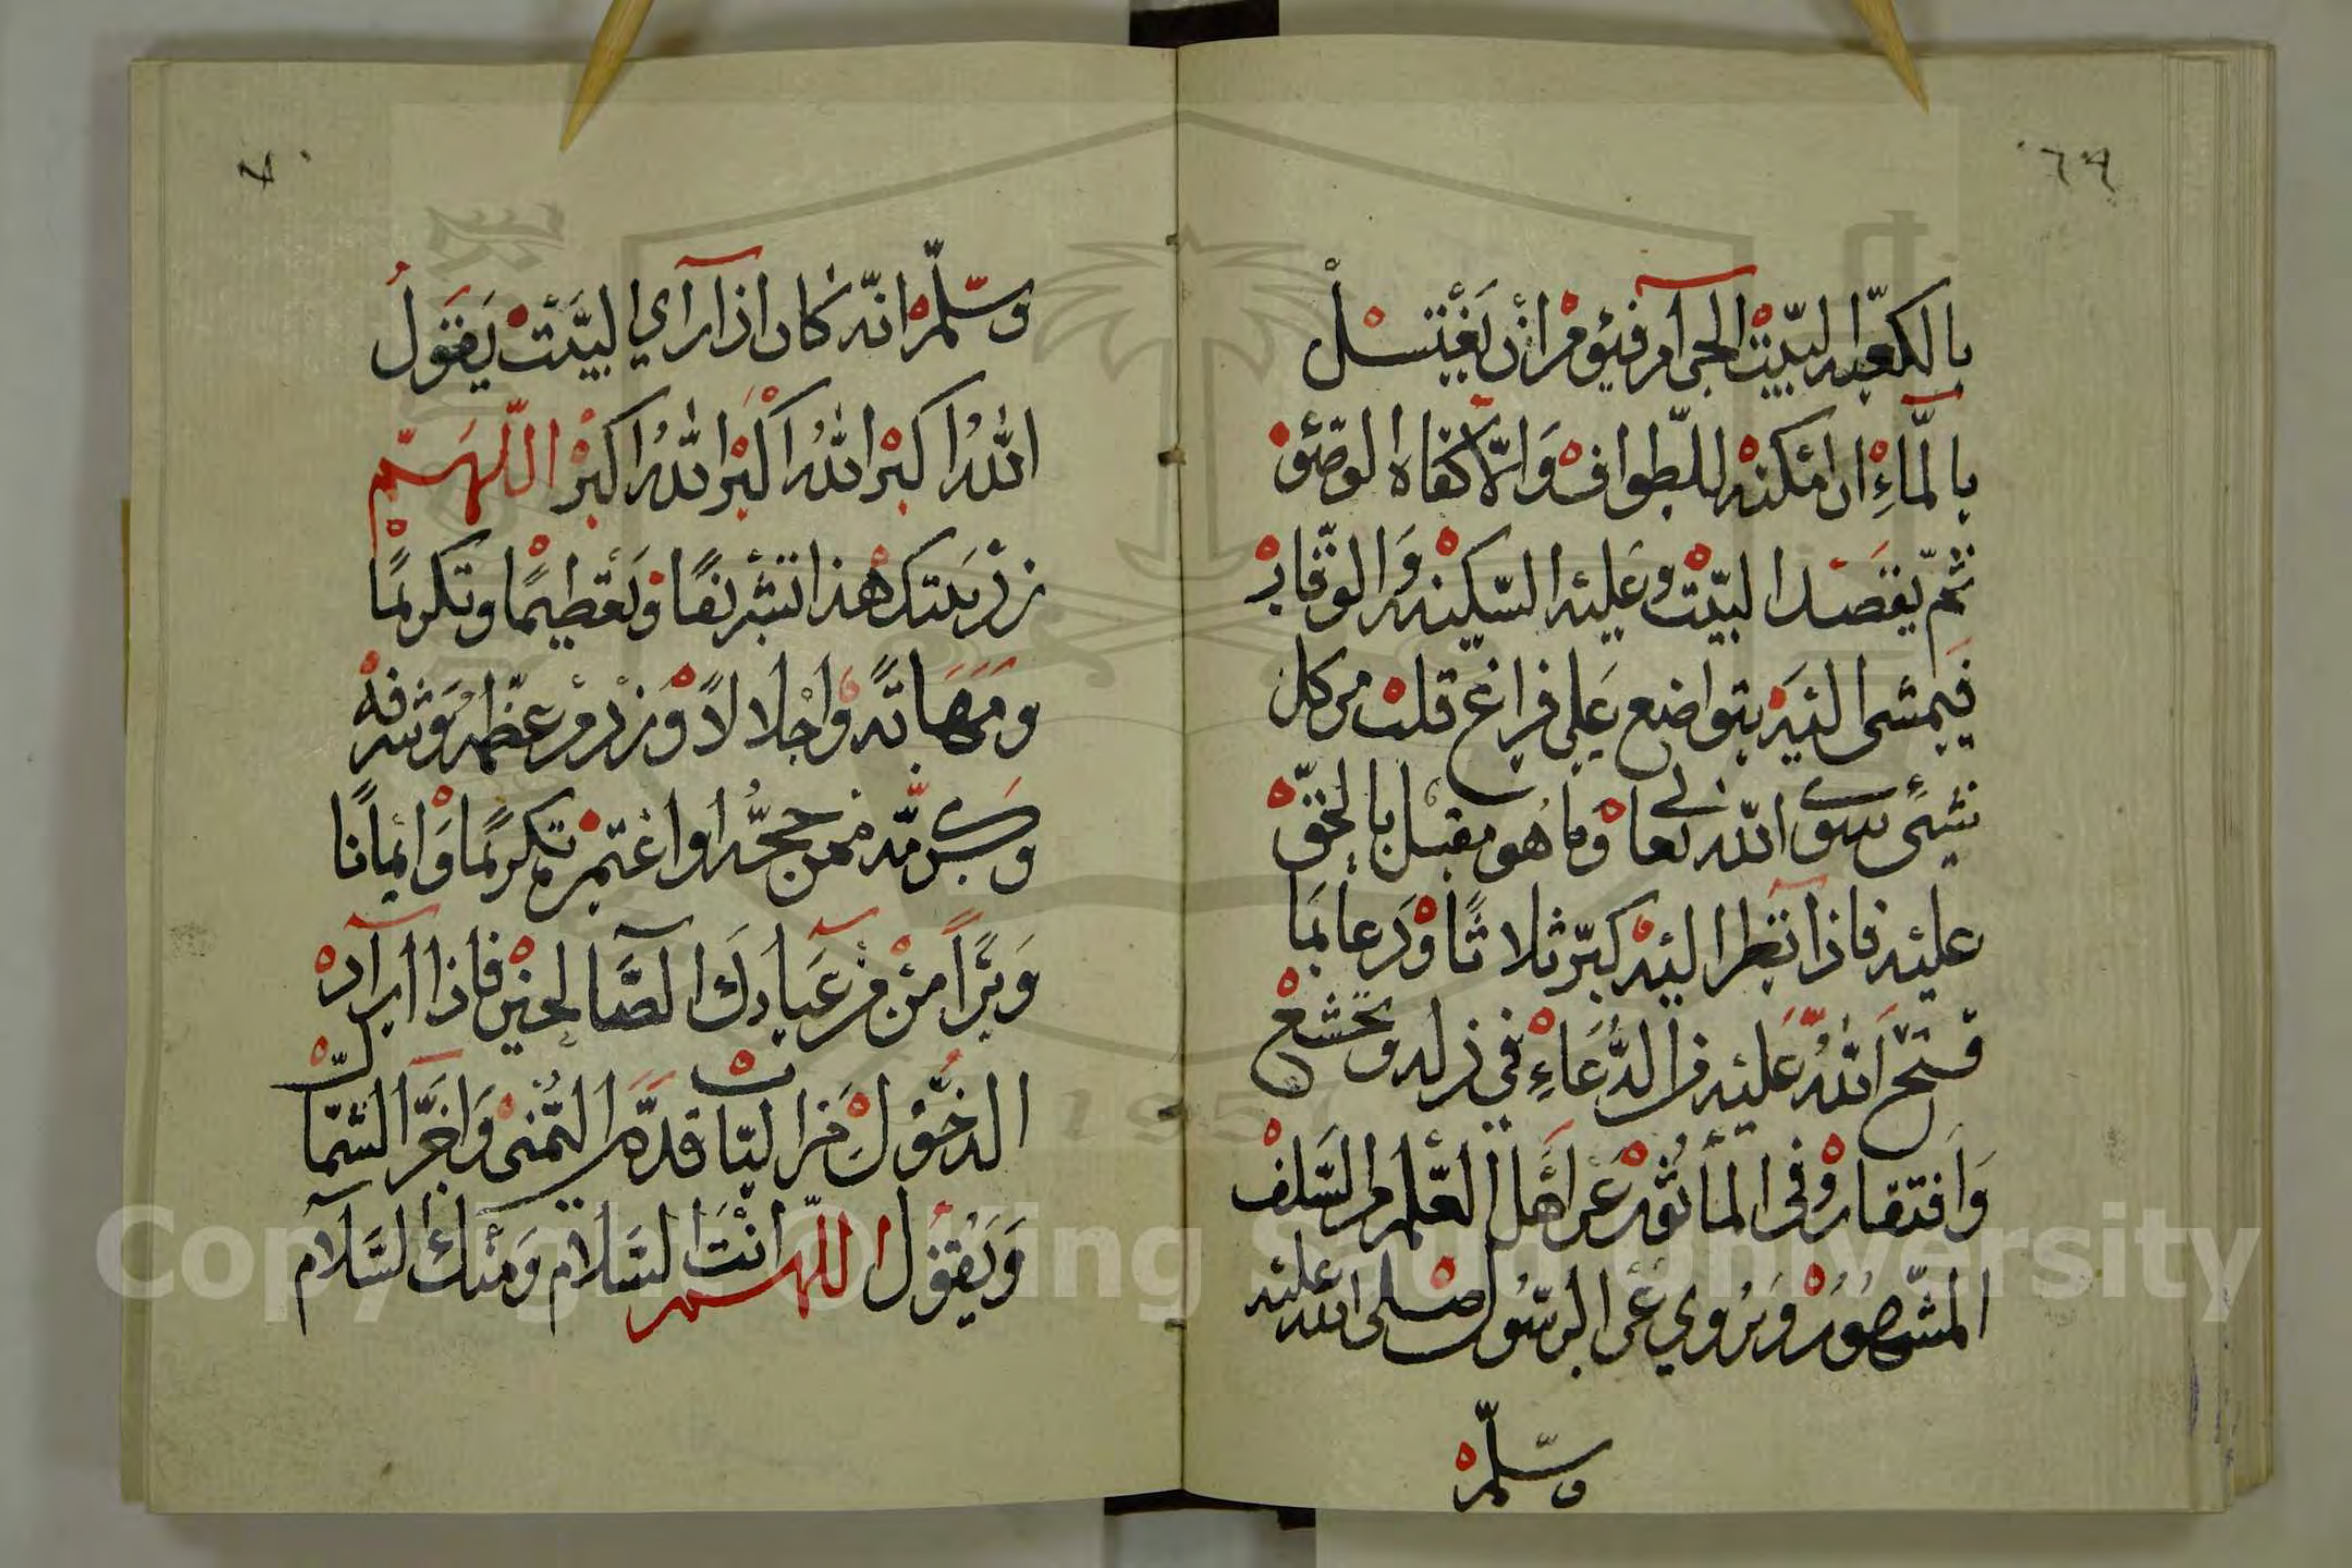 ٦٩
بالكعبه البيت الحرآم فيؤمر ان يغتسل
بالمآءِ ان امكنه للطواف والّا كفاه الوضؤ
ثم يقصد البيت وعليه السكينه والوقار
فيمشى اليه بتواضع على فراغ قلب من كل
شيئ سوى الله تعالى وما هو مقبل بالحق
عليه فاذا نظر اليه كبّر ثلاثًا ودعا بما
فتح الله عليه من الدعاءِ في ذلك ويخشع
وافتقار وفى المأثور عن اهل العلم والسلف
المشهور ويروي عن الرسول صلى الله عليه
وسلم
٧٠
وسلم انه كان اذا رآي البيت يقول
الله اكبر الله اكبر الله اكبر اللهم
زد بيتك هذا تشريفًا وتعظيمًا وتكريمًا
ومهابةً واجلالاً وزد من عظمه وشرفه
وكرّمه ممن حجه او اعتمر تكريمًا وايمانًا
وبرًا من عبادك الصالحين فاذا اراد
الدخول من الباب قدم اليمنى واخر الشمال
ويقول اللهم انت السلام ومنك السلام
Copyright © King Saud University
1957